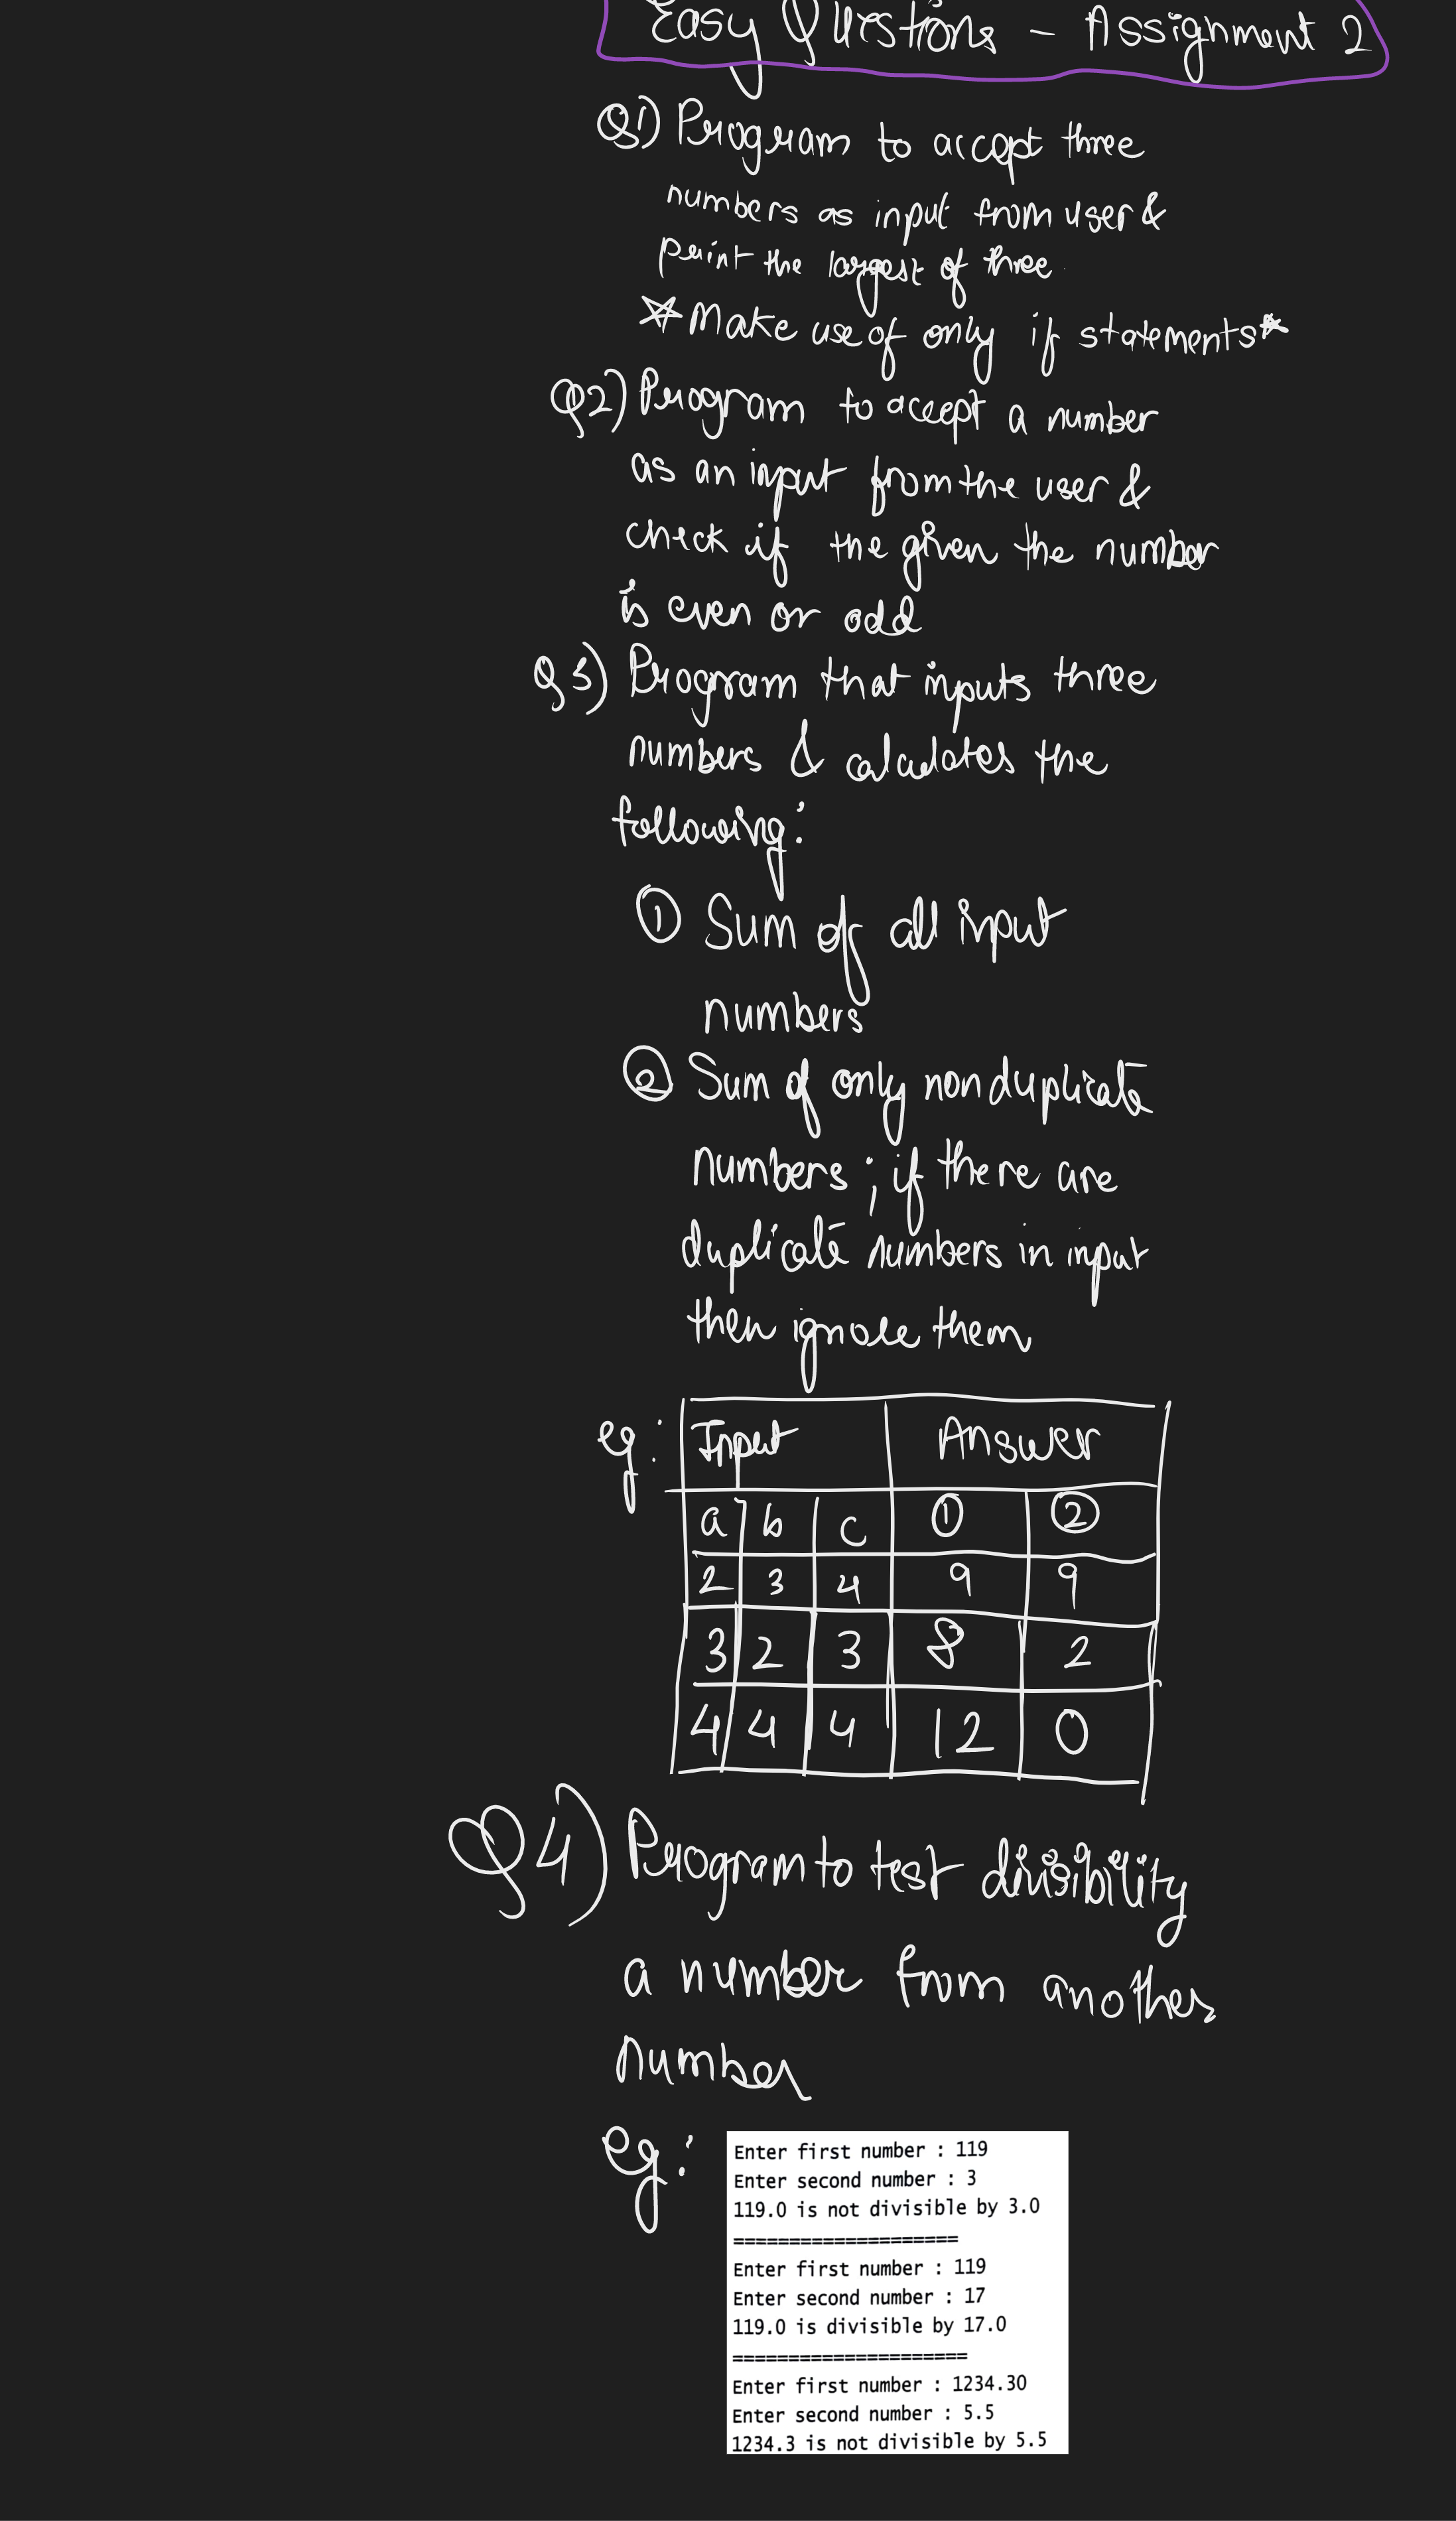 Easy Questions - Assignment 2
Q1) Program to accept three
numbers as input from user &
print the largest of three.
*Make use of only if statements*
Q2) Program to accept a number
as an input from the user &
check if the given the number
is even or odd
Q3) Program that inputs three
numbers & calculates the
following:
① Sum of all input
numbers
② Sum of only non duplicate
numbers; if there are
duplicate numbers in input
then ignore them
eg: Input Answer
a b c ① ②
2 3 4 9 9
3 2 3 8 2
4 4 4 12 0
Q4) Program to test divisibility
a number from another
number
eg:
Enter first number : 119
Enter second number : 3
119.0 is not divisible by 3.0
====================
Enter first number : 119
Enter second number : 17
119.0 is divisible by 17.0
=====================
Enter first number : 1234.30
Enter second number : 5.5
1234.3 is not divisible by 5.5